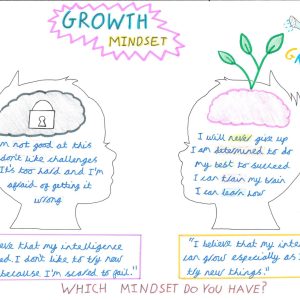 GROWTH
MINDSET
G
I'm not good at this
don't like challenges
It's too hard and I'm
afraid of getting it
wrong
I will never give up
I am determined to do
my best to succeed
I can train my brain
I can learn how
eve that my intelligence
ed. I don't like to try new
because I'm scared to fail."
"I believe that my inte
can grow especially as I
try new things."
WHICH MINDSET DO YOU HAVE?